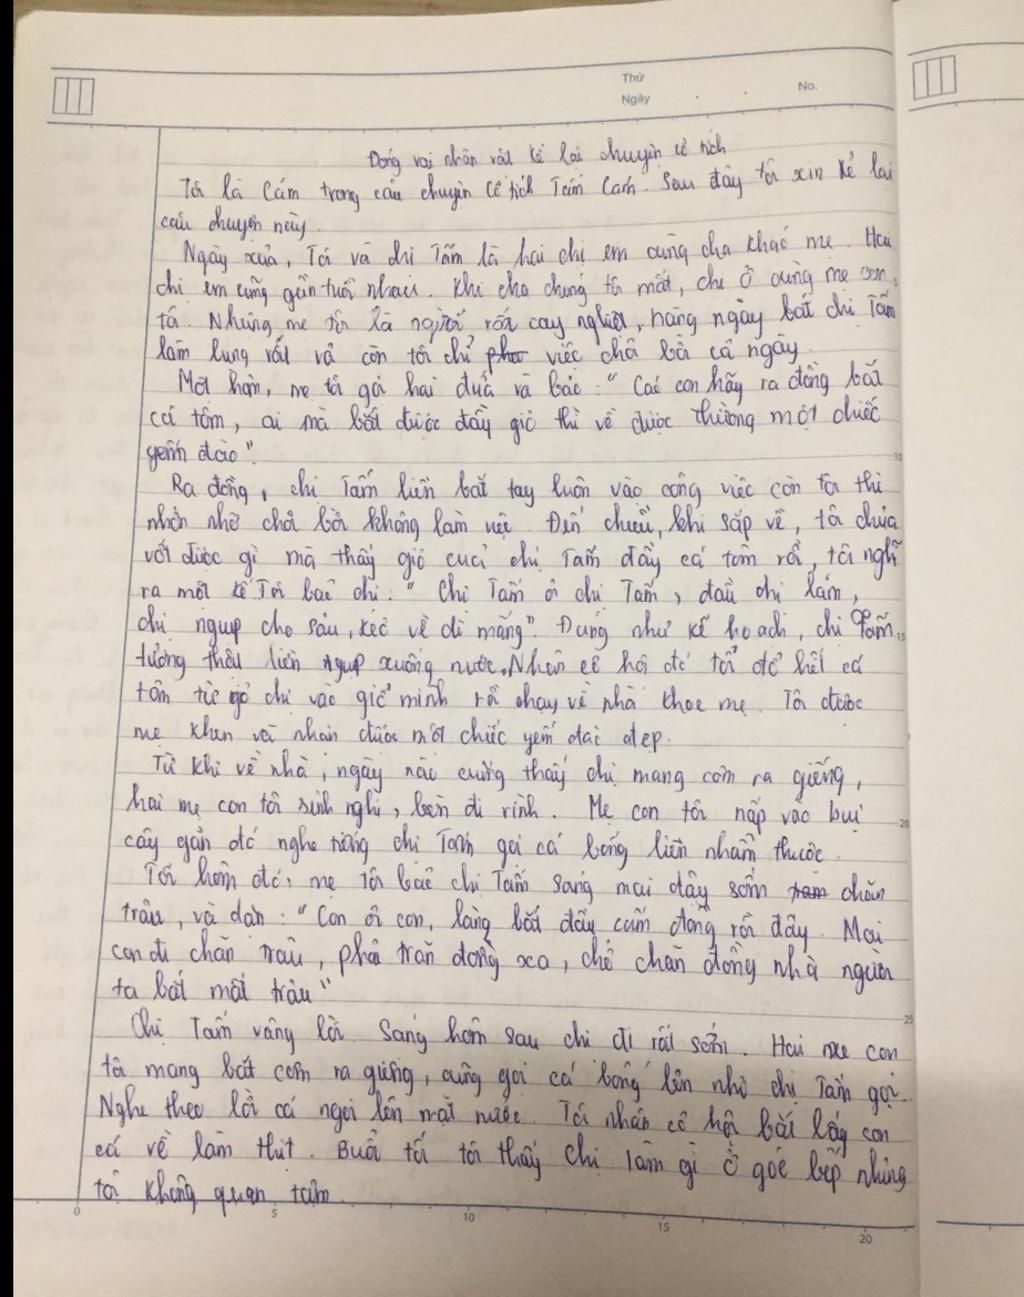 Thứ
Ngày
No.
Đóng vai nhân vật kể lại chuyện cổ tích
Tôi là Cám trong câu chuyện cổ tích Tấm Cám. Sau đây tôi xin kể lại
câu chuyện này.
Ngày xưa, Tôi và chị Tấm là hai chị em cùng cha khác mẹ. Hai
chị em cũng gần tuổi nhau. Khi cha chúng tôi mất, chị ở cùng mẹ con
tôi. Nhưng mẹ tôi là người rất cay nghiệt, hàng ngày bắt chị Tấm
làm lụng vất vả còn tôi chỉ việc chơi bời cả ngày.
Một hôm, mẹ tôi gọi hai đứa và bảo: "Các con hãy ra đồng bắt
cá tôm, ai mà bắt được đầy giỏ thì về được thưởng một chiếc
yếm đào".
10
Ra đồng, chị Tấm liền bắt tay luôn vào công việc còn tôi thì
nhởn nhơ chơi bời không làm việc. Đến chiều, khi sắp về, tôi chưa
vớt được gì mà thấy giỏ của chị Tấm đầy cá tôm rồi, tôi nghĩ
ra một kế Tôi bảo chị: "Chị Tấm ơi chị Tấm, đầu chị lấm,
chị ngụp cho sâu, kẻo về dì mắng". Đúng như kế hoạch, chị Tấm
15
tưởng thật liền ngụp xuống nước. Nhân cơ hội đó tôi đổ hết cá
tôm từ giỏ chị vào giỏ mình rồi chạy về nhà khoe mẹ. Tôi được
mẹ khen và nhận được một chiếc yếm đào đẹp.
Từ khi về nhà, ngày nào cũng thấy chị mang cơm ra giếng,
hai mẹ con tôi sinh nghi, bèn đi rình. Mẹ con tôi nấp vào bụi
20
cây gần đó nghe tiếng chị Tấm gọi cá bống liền nhẩm thuộc.
Tối hôm đó, mẹ tôi bảo chị Tấm sáng mai dậy sớm chăn
trâu, và dặn: "Con ơi con, làng bắt đầy cấm đồng rồi đấy. Mai
con đi chăn trâu, phải trăn đồng xa, chớ chăn đồng nhà người
ta bắt mất trâu"
25
Chị Tấm vâng lời. Sáng hôm sau chị đi rất sớm. Hai mẹ con
tôi mang bát cơm ra giếng, cũng gọi cá bống lên như chị Tấm gọi.
Nghe theo lời cá ngoi lên mặt nước. Tôi nhân cơ hội bắt lấy con
cá về làm thịt. Buổi tối tôi thấy chị làm gì ở góc bếp nhưng
tôi không quan tâm.
0 5 10 15 20